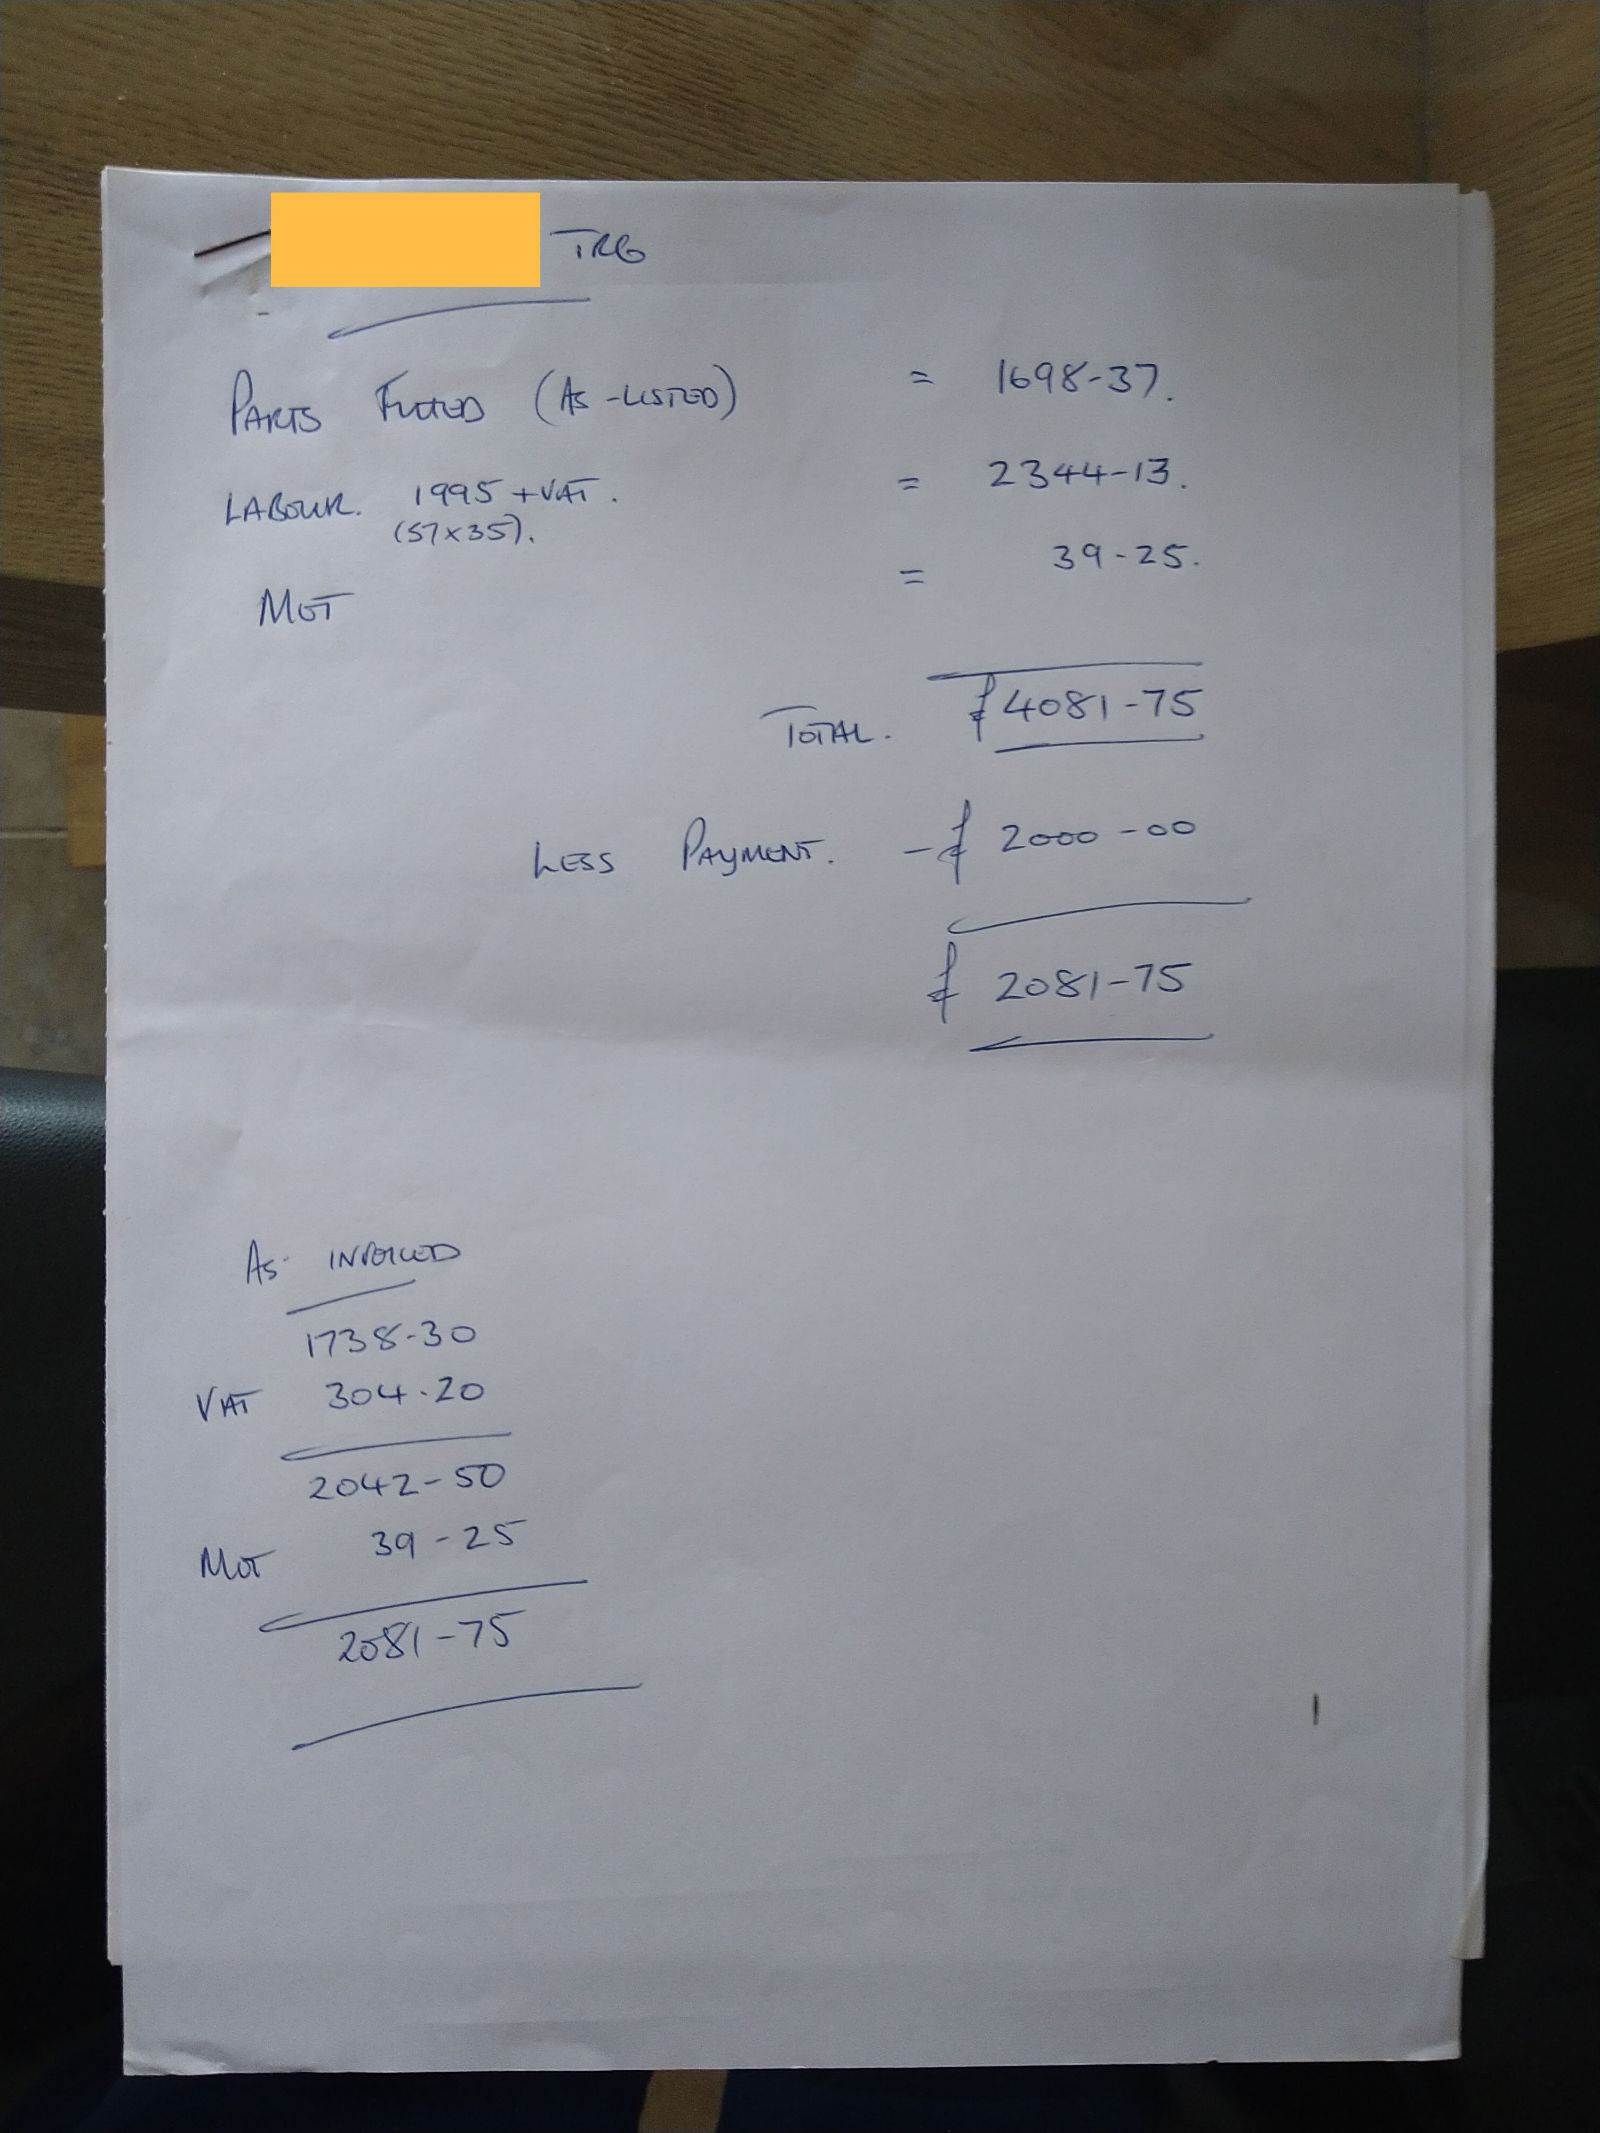 TR6
PARTS FITTED (AS-LISTED) = 1698-37.
LABOUR. 1995 + VAT. = 2344-13.
(57x35).
MOT = 39-25.
TOTAL. £4081-75
LESS PAYMENT. -£ 2000-00
£ 2081-75
AS INVOICED
1738-30
VAT 304.20
2042-50
MOT 39-25
2081-75